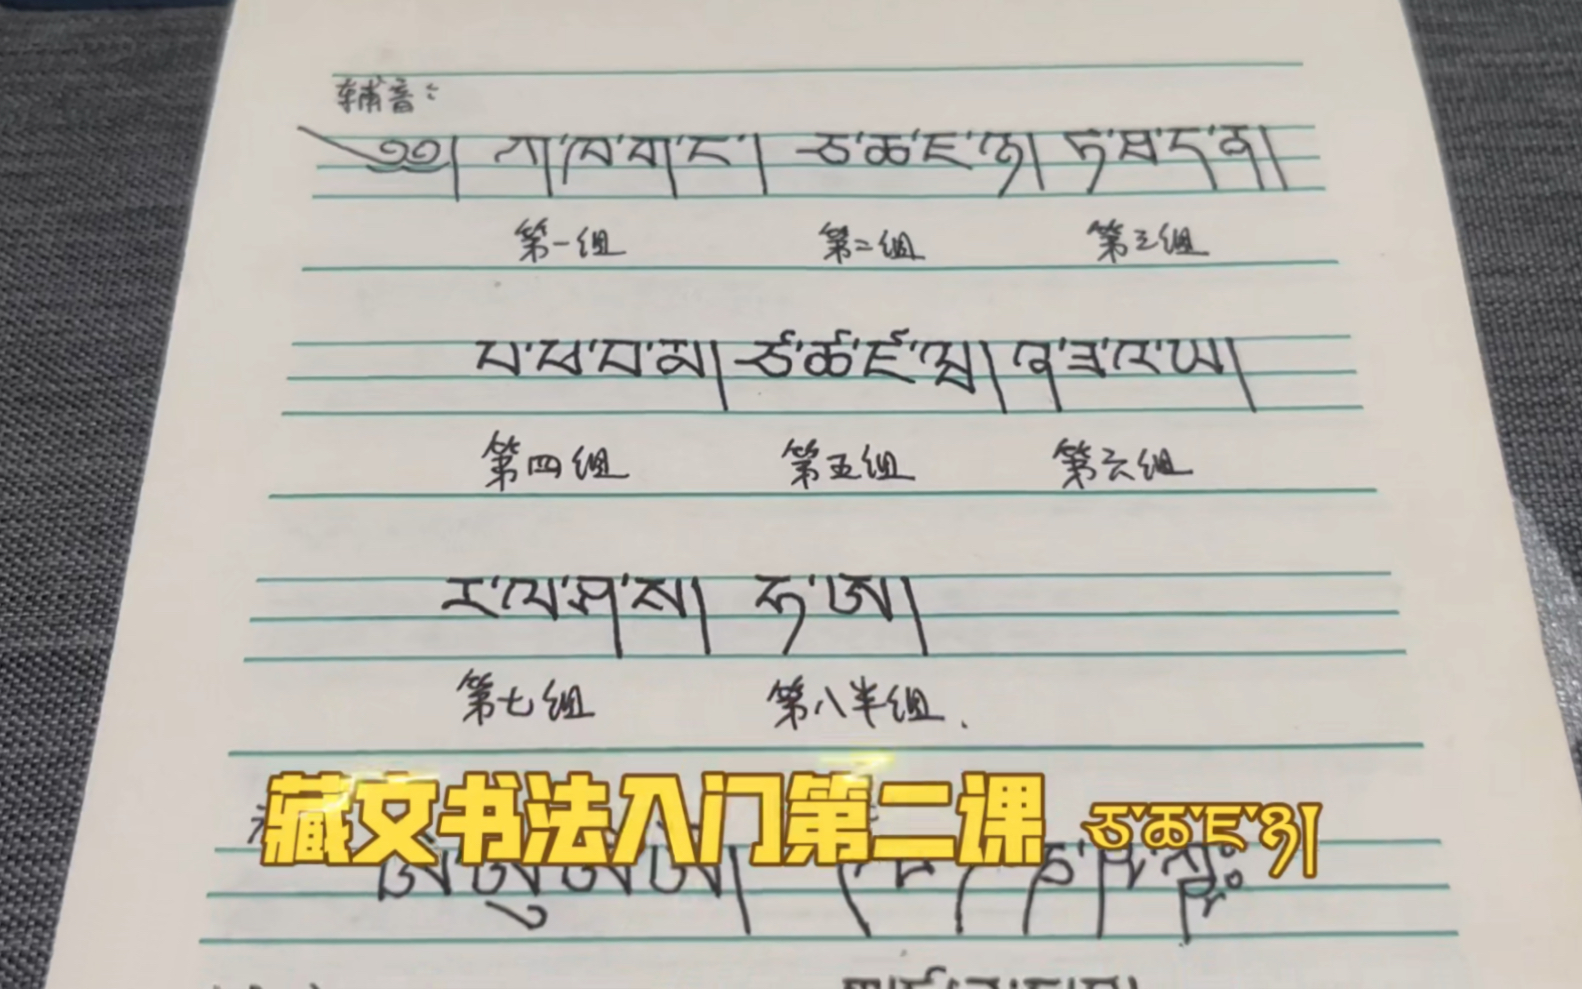 辅音：
༄༅། ཀ་ཁ་ག་ང་། ཅ་ཆ་ཇ་ཉ། ཏ་ཐ་ད་ན།
第一组 第二组 第三组
པ་ཕ་བ་མ། ཙ་ཚ་ཛ་ཝ། ཞ་ཟ་འ་ཡ།
第四组 第五组 第六组
ར་ལ་ཤ་ས། ཧ་ཨ།
第七组 第八半组.
藏文书法入门第二课 ཅ་ཆ་ཇ་ཉ།